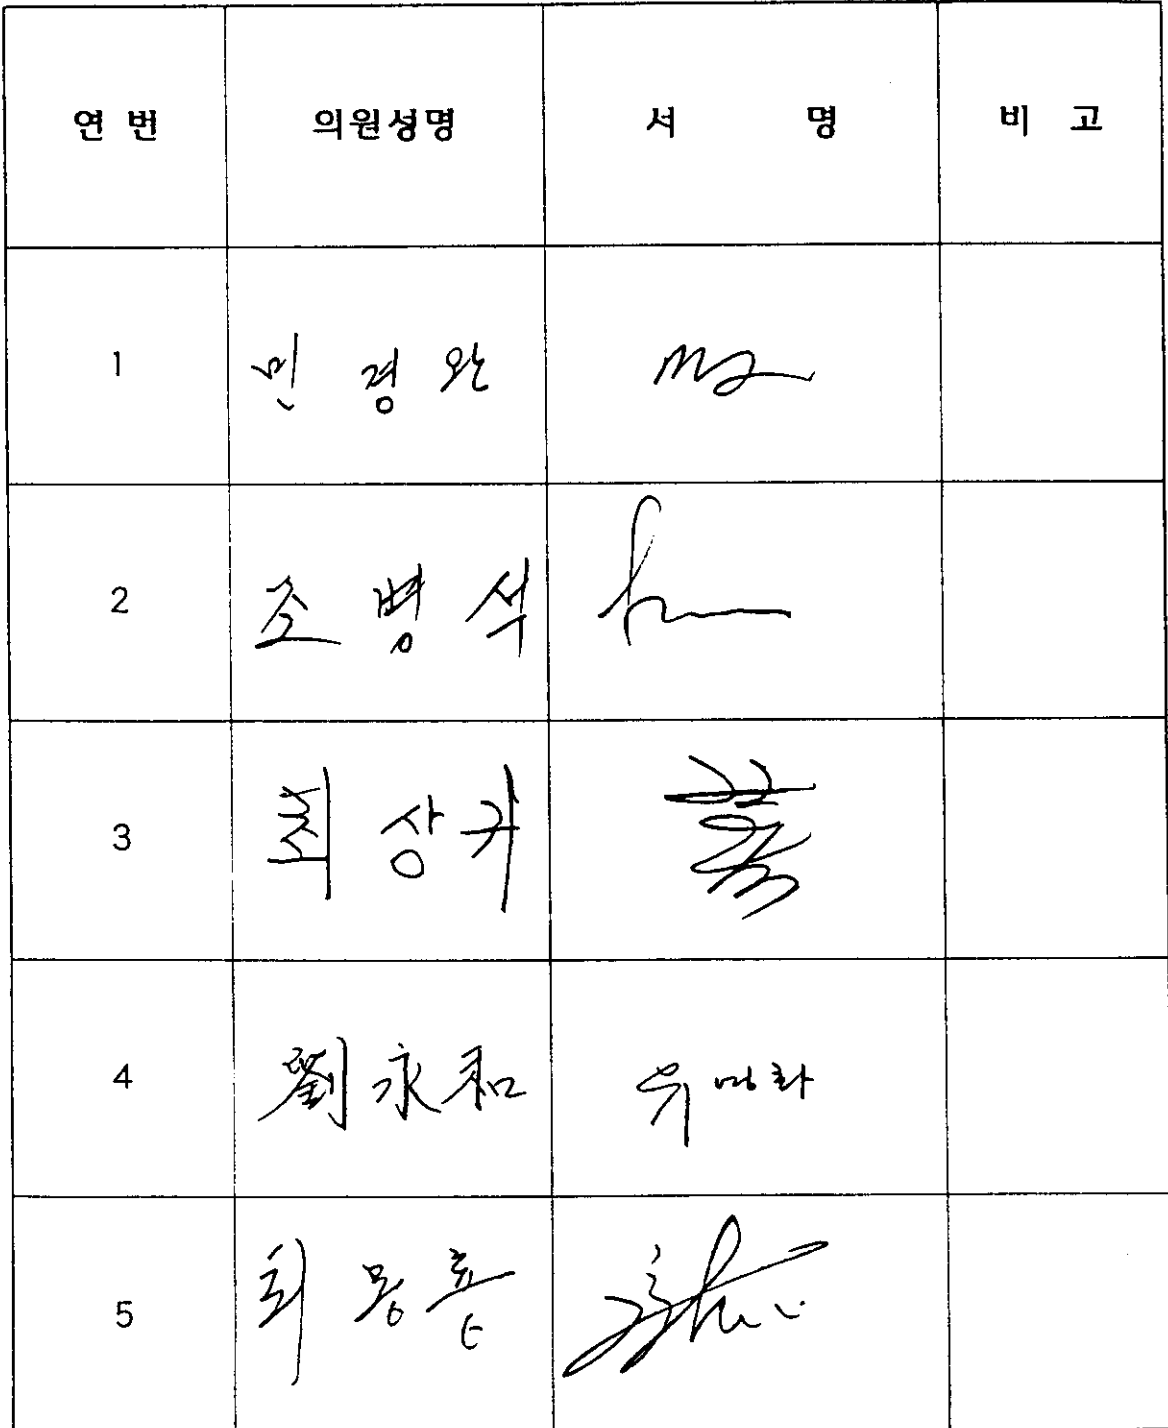 연 번 의원성명 서 명 비 고
1 민 경 완
2 조 병 석
3 최 상 귀
4 劉 永 和 유영화
5 최